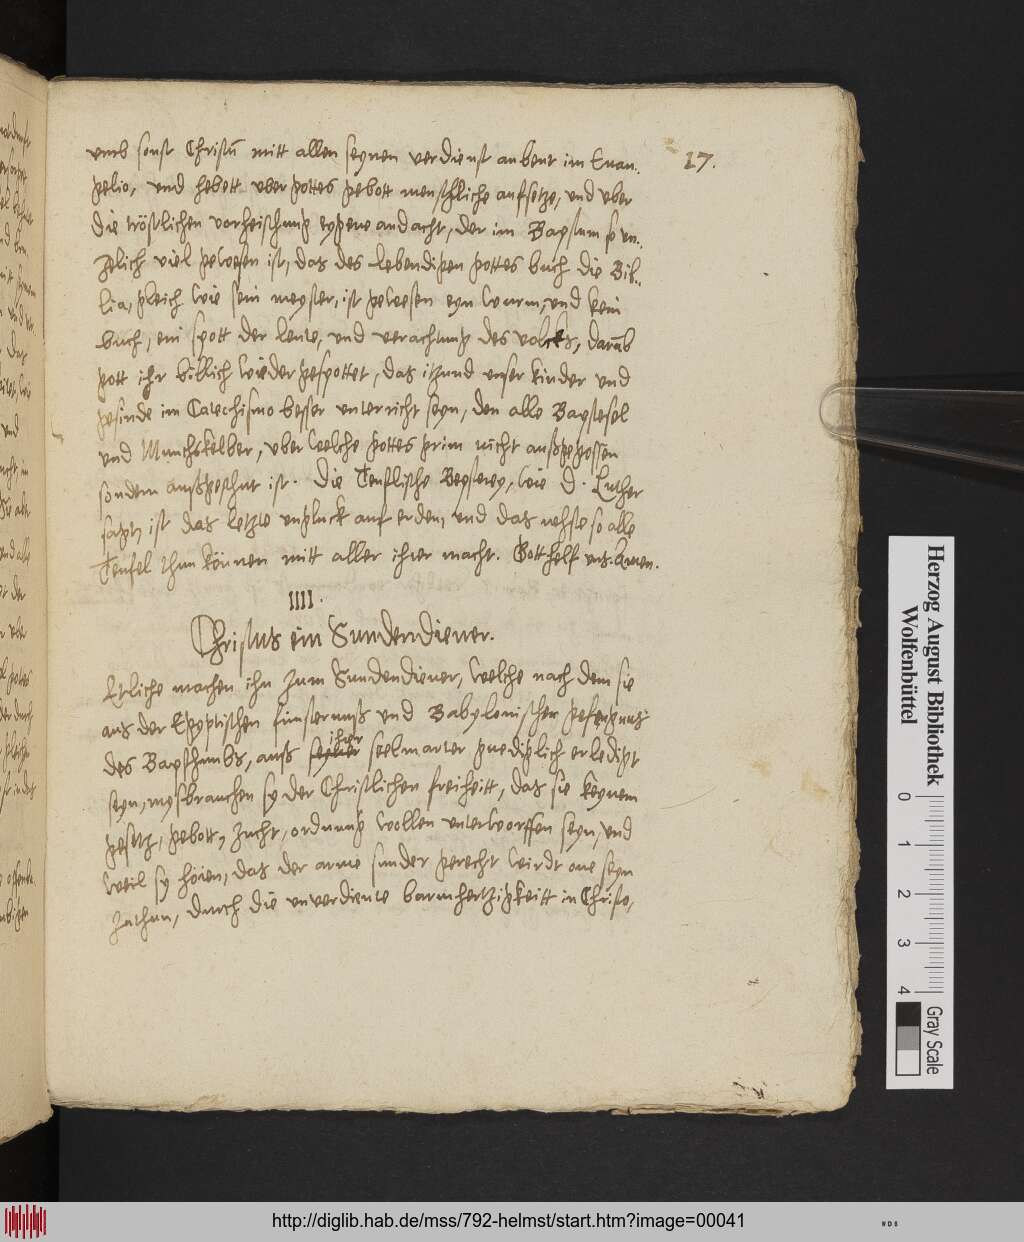 umb sonst Christũ mitt allen seynen verdienst anbeut im Euan-
gelio, und hebett uber gottes gebott menschliche aufsetze, und uber
die tröstlichen vorheischung eygene andacht, der im Bapstum so un-
zelich viel gewesen ist, das des lebendigen gottes buch die Bib-
lia, gleich wie sein meyster, ist gewesen eyn wurm, und kein
buch, ein spott der leute, und verachtung des volcks, darũb
gott ihr billich wieder gespottet, das itzund unser kinder und
gesinde im Catechismo besser unterricht seyn, den alle Bapstesel
und Munchskelber, uber welche gottes grim nicht außgegossen
sondern ist. Die Teuflische Bepsterey, wie D. Luther
sagt, ist das letzte ungluck auf erden, und das nehste so alle
Teufel thun können mitt aller ihrer macht. Gott helf uns. Amen.
17.
IIII.
Christus ein Sundendiener.
Etliche machen ihn zum Sundendiener, welche nach dem sie
aus der Egyptischen finsternuß und Babylonischer gefengnus
des Bapsthumbs, auß ihrer seelmarter gnediglich erledigt
seyn, mysbrauchen sy der Christlichen freiheitt, das sie keynem
gesetz, gebott, zucht, ordnung wollen unterworffen seyn, und
weil sy hören, das der arme sunder gerecht wirdt one seyn
zuthun, durch die unverdiente barmhertzigkeitt in Christo,
Herzog August Bibliothek
Wolfenbüttel
0 1 2 3 4
Gray Scale
http://diglib.hab.de/mss/792-helmst/start.htm?image=00041